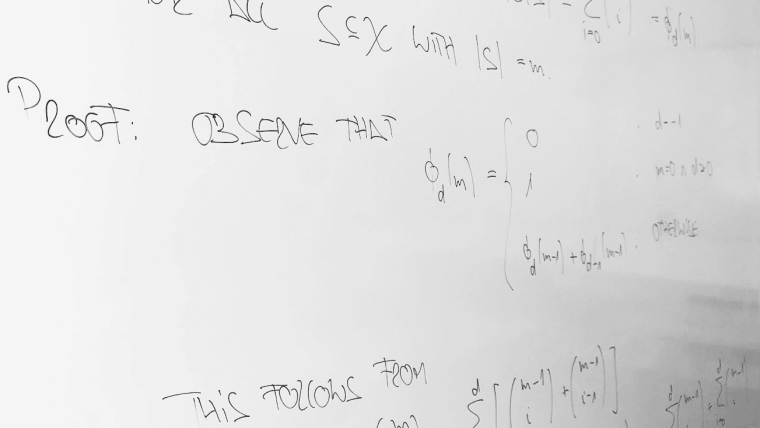 ALL S⊆X WITH |S| = m.
= Σ_{i=0} ( i ) = ϕ_d(m)
PROOF: OBSERVE THAT
ϕ_d(m) = {
0 . d=-1
1 . m=0 ∧ d≥0
ϕ_d(m-1) + ϕ_{d-1}(m-1) . OTHERWISE
THIS FOLLOWS FROM
Σ^d [ (m-1 i) + (m-1 i-1) ]